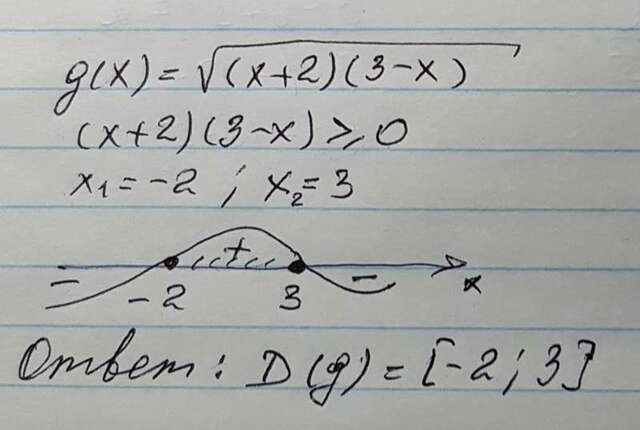 g(x) = √(x+2)(3-x)
(x+2)(3-x) ≥ 0
x₁ = -2 ; x₂ = 3
- + -
-2 3 x
Ответ: D(g) = [-2; 3]